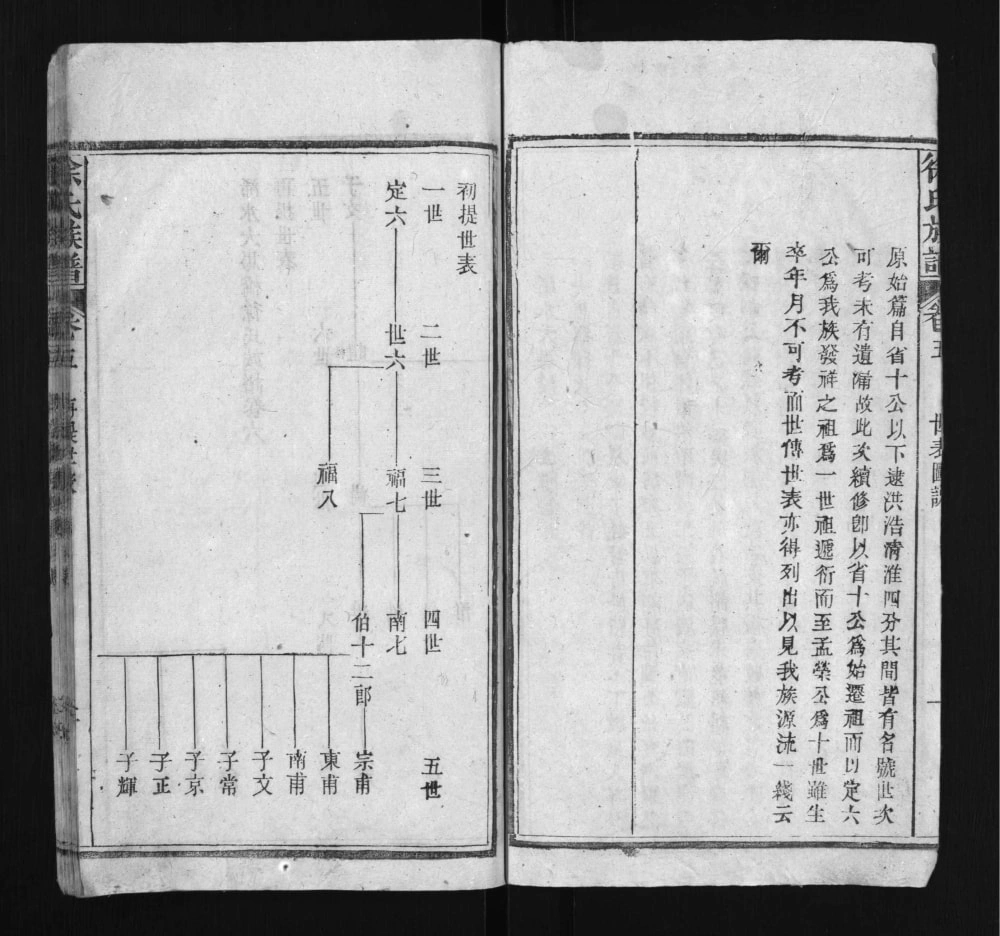 徐氏族譜
卷五
世表圖說
一
原始篇自省十公以下逮洪浩清淮四分其間皆有名號世次
可考未有遺漏故此次續修卽以省十公爲始遷祖而以定六
公爲我族發祥之祖爲一世祖遞衍而至孟榮公爲十世雖生
卒年月不可考而世傳世表亦得列出以見我族源流一綫云
爾
初提世表
一世 二世 三世 四世 五世
定六 世六 福七 南七
伯十二郎 宗甫
福八 東甫
南甫
子文
子常
子京
子正
子輝
徐氏族譜
卷五